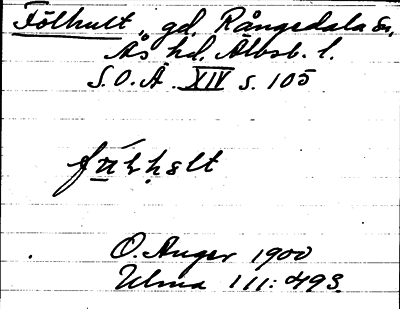 Fölhult, gd. Rångedala sn,
Ås hd. Älvsb. l.
S.O.Ä. XIV s. 105
O. Auger 1900
Ulma 111:493.